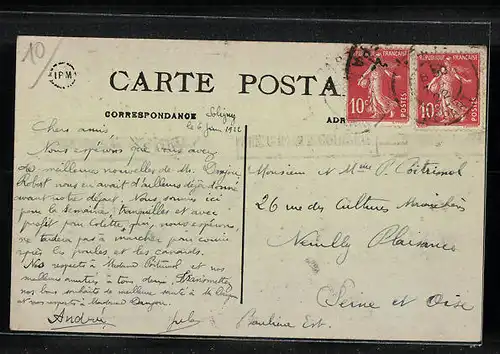 10
IPM
CARTE POSTA
CORRESPONDANCE
ADR
REPUBLIQUE FRANÇAISE
10c POSTES
REPUBLIQUE FRANÇAISE
10c POSTES
Soligny
le 6 juin 1922
Chers amis,
Nous espérons que vous avez
de meilleures nouvelles de M.
Robert nous en avait d'ailleurs déjà donné
avant notre départ. Nous sommes ici
pour la semaine, tranquilles et avec
profit pour Colette, qui, nous espérons,
ne tardera pas à marcher pour courir
après les poules et les canards.
Nos respects à Madame et nos
meilleures amitiés à tous deux.
nos bons souhaits de meilleure santé à M.
et nos respects à Madame
André
Monsieur et Mme P. Poitrimol
26 rue des Cultures Maraichères
Neuilly Plaisance
Seine et Oise
Banlieue Est.